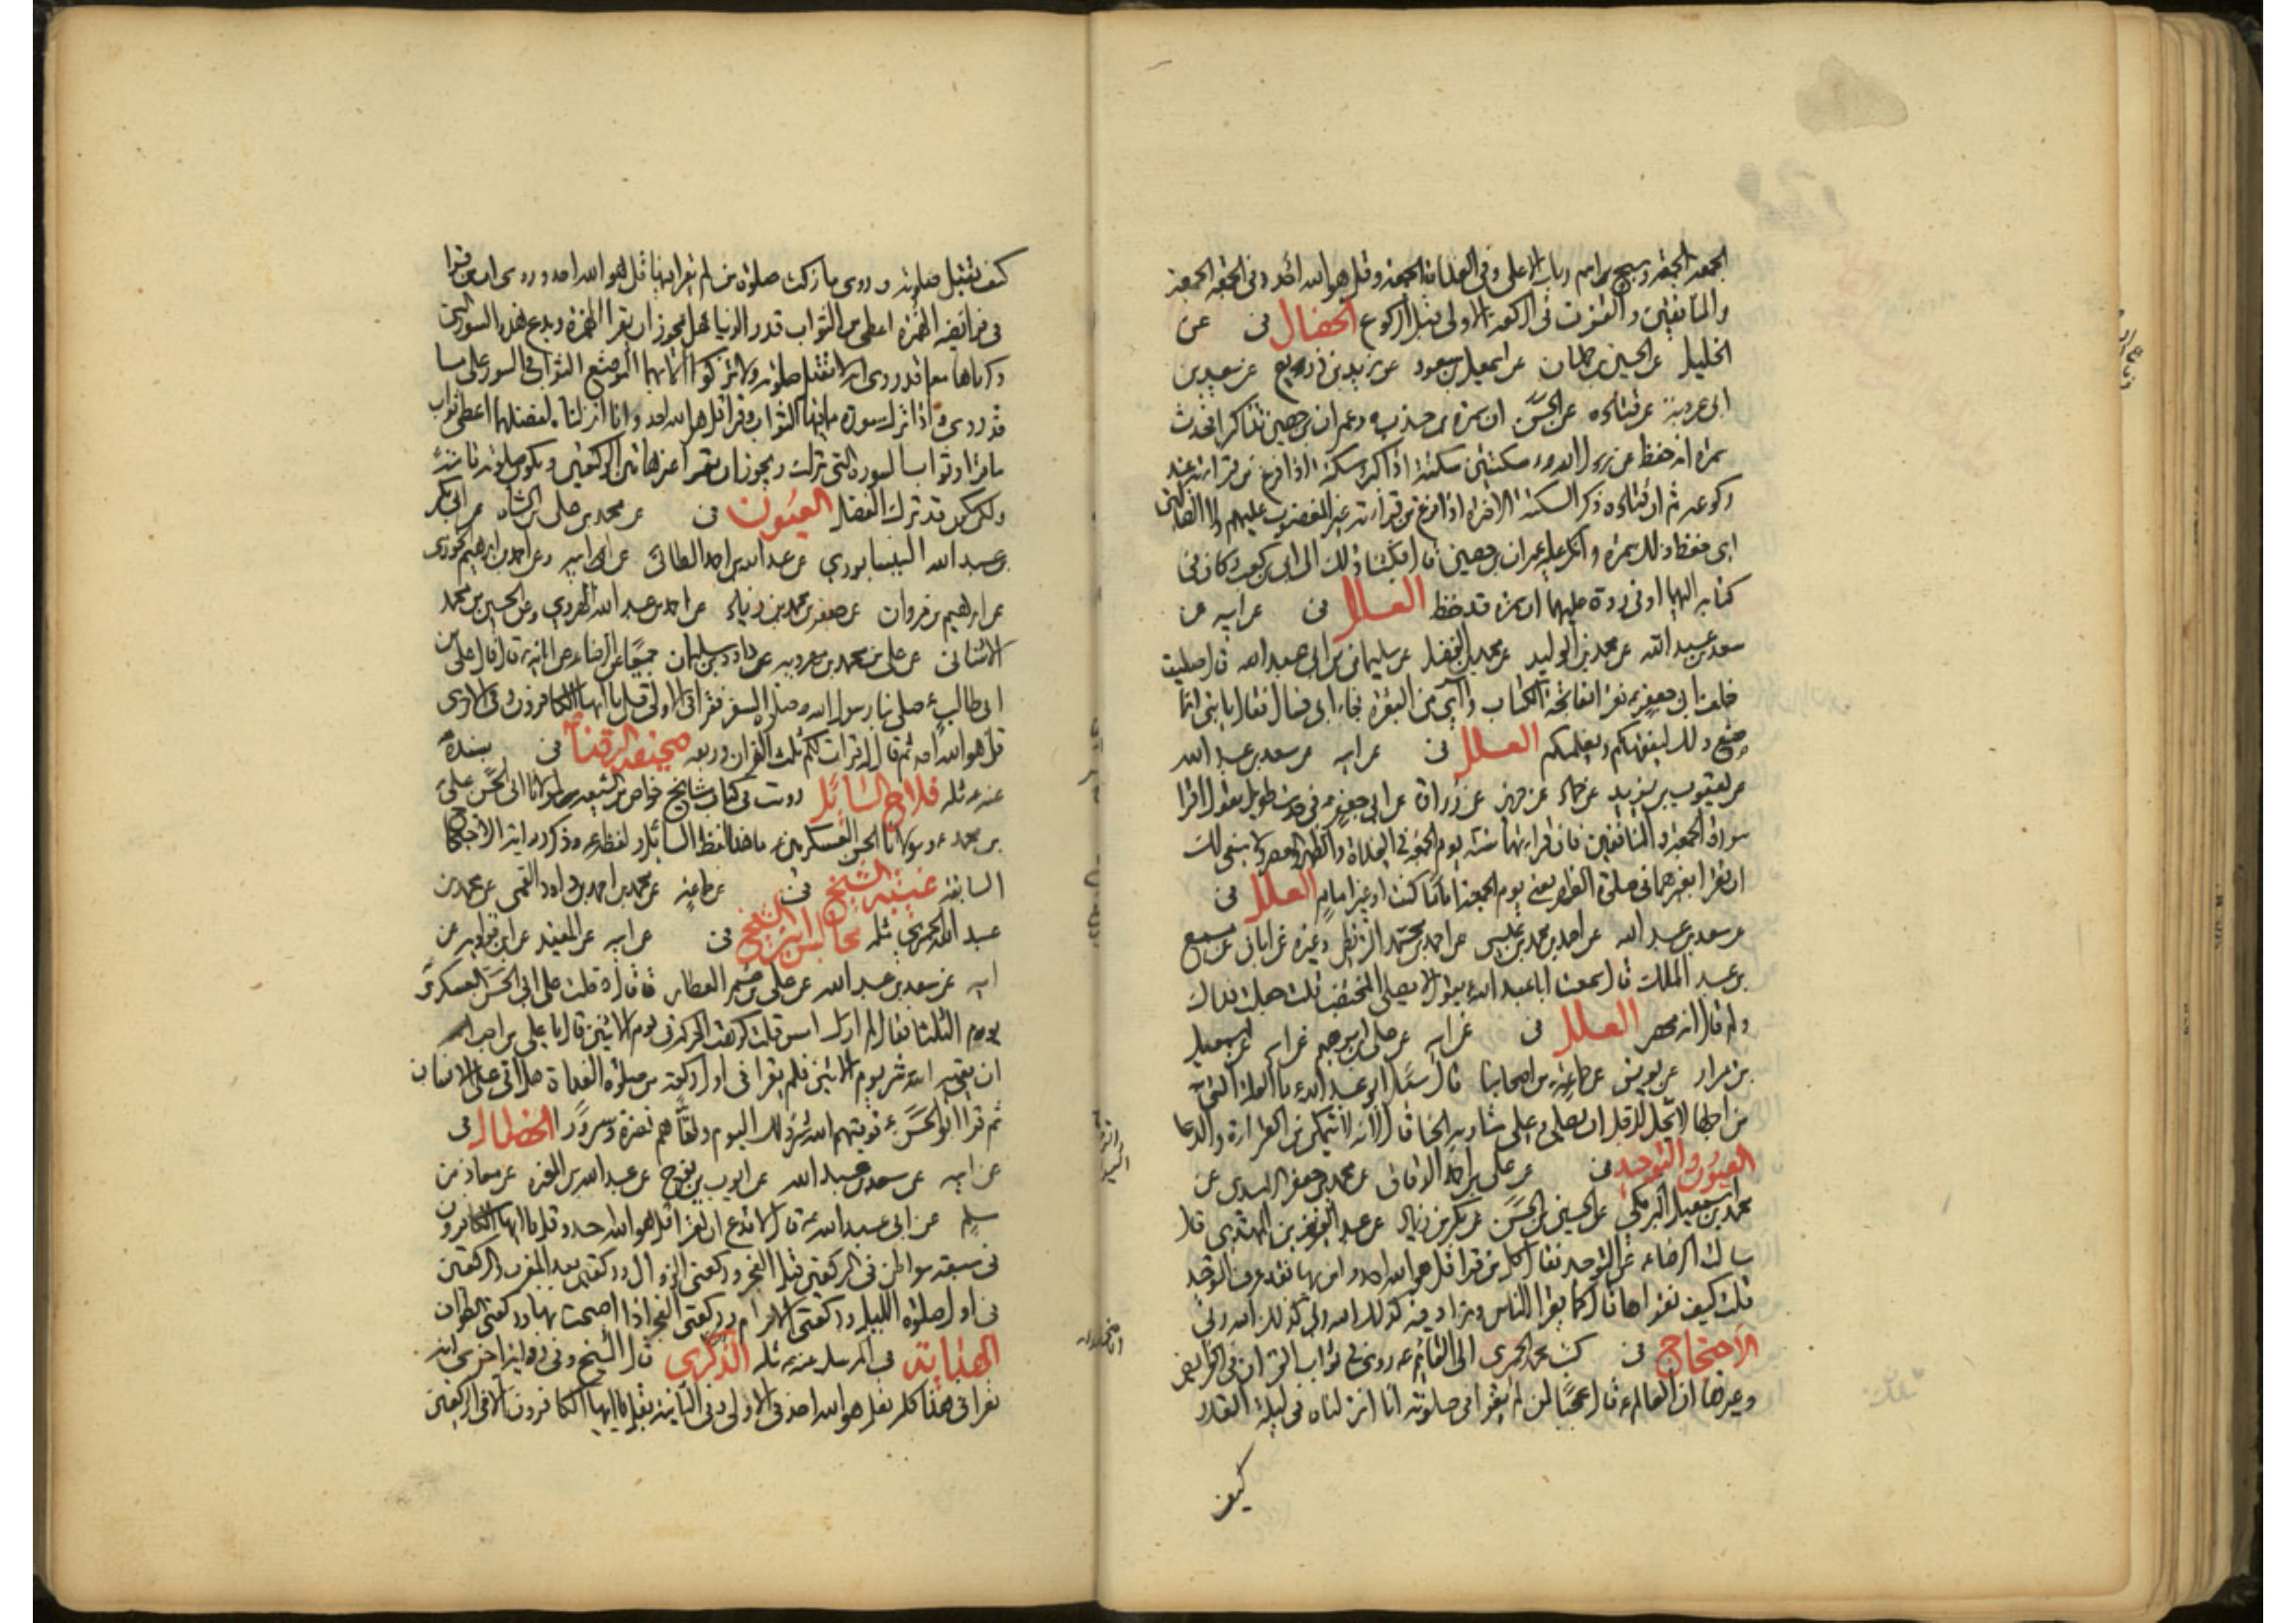 الجمعة الجمعة وسبح اسم ربك الاعلى وفي الغداة الجمعة وقل هو الله احد وفي الجمعة الجمعة
والمنافقين والقنوت في الركعة الاولى قبل الركوع الخصال في عن
الخليل عن الحسين بن حمدان عن اسمعيل بن مسعود عن يزيد بن ذريع عن سعيد بن
ابي عروبة عن قتاده عن الحسن ان سمرة بن جندب وعمران بن حصين تذاكرا فحدث
سمرة انه حفظ عن رسول الله سكتتين سكتة اذا كبر وسكتة اذا فرغ من قرائته عند
ركوعه ثم ان قتاده ذكر السكتة الاخيرة اذا فرغ من قرائته غير المغضوب عليهم ولا الضالين
اي حفظ ذلك سمرة وانكر عليه عمران بن حصين قال فكتبنا في ذلك الى ابي بن كعب وكان في
كتابه اليهما او في رده عليهما ان سمرة قد حفظ العلل في عن ابيه عن
سعد بن عبد الله عن محمد بن الوليد عن محمد بن الفضل عن سليمان بن ابي عبد الله قال صليت
خلف ابي جعفر فقرأ بفاتحة الكتاب وآي من البقرة فجاء ابي فسأل فقال يا بني انما
صنع ذلك ليفقهكم ويعلمكم العلل في عن ابيه عن سعد بن عبد الله
عن يعقوب بن يزيد عن حماد عن حريز عن زرارة عن ابي جعفر في حديث طويل يقول اقرأ
سورة الجمعة والمنافقين فان قرائتهما سنة يوم الجمعة في الغداة والظهر والعصر ولا ينبغي لك
ان تقرأ بغيرهما في صلوة الظهر يعني يوم الجمعة اماما كنت او غير امام العلل في
عن سعد بن عبد الله عن احمد بن محمد بن عيسى عن احمد بن محمد البزنطي وغيره عن ابان عن مسمع
بن عبد الملك قال سمعت ابا عبد الله يقول لا يصلي المختضب قلت جعلت فداك
ولم قال انه محصر العلل في عن ابيه عن علي بن ابرهيم عن ابيه عن اسمعيل
بن مرار عن يونس عن جماعة من اصحابنا قال سئل ابو عبد الله ما العلة التي
من اجلها لا يحل للرجل ان يصلي وعلى شاربه الحنا قال لانه لا يتمكن من القراءة والدعا
العيون والتوحيد في عن علي بن احمد الدقاق عن محمد بن جعفر الاسدي عن
محمد بن اسمعيل البرمكي عن الحسين بن الحسن عن بكر بن زياد عن عبد العزيز بن المهتدي قال
سالت الرضا عن التوحيد فقال كل من قرأ قل هو الله احد وامن بها فقد عرف التوحيد
قلت كيف نقرأها قال كما يقرأ الناس وزاد فيه كذلك الله ربي كذلك الله ربي
الاحتجاج في كتب محمد الحميري الى القائم روي في ثواب القرآن في الفرايض
وغيرها ان العالم قال عجبا لمن لم يقرأ في صلوته انا انزلناه في ليلة القدر
كيف
كيف تقبل صلوته وروي ما زكت صلوة من لم يقرأ فيها قل هو الله احد وروي ان من قرأ
في فرائضه الهمزة اعطي من الثواب قدر الدنيا فهل يجوز ان يقرأ الهمزة ويدع هذه السور التي
ذكرناها مع ما قد روي انه لا تقبل صلوة ولا تزكوا الا بهما التوقيع الثواب في السور على ما
قد روي واذا ترك سورة مما فيها الثواب وقرأ قل هو الله احد وانا انزلناه لفضلهما اعطي ثواب
ما قرأ وثواب السورة التي ترك ويجوز ان يقرأ غير هاتين السورتين وتكون صلوته تامة
ولكن يكون قد ترك الفضل العيون في عن محمد بن علي بن الشاه عن ابي بكر
بن عبد الله النيسابوري عن عبد الله بن احمد الطائي عن ابيه وعن احمد بن ابرهيم الخوزي
عن ابرهيم بن مروان عن جعفر بن محمد بن زياد عن احمد بن عبد الله الهروي وعن الحسين بن محمد
الاشناني عن علي بن محمد بن مهرويه عن داود بن سليمان جميعا عن الرضا عن ابائه قال قال علي بن
ابي طالب صلى بنا رسول الله صلوة السفر فقرأ في الاولى قل يا ايها الكافرون وفي الاخرى
قل هو الله احد ثم قال قرأت لكم ثلث القران وربعه صحيفة الرضا في بسنده
عنه مثله فلاح السائل رويت في كتاب مشايخ خواص من الشيعة لمولانا ابي الحسن علي
بن محمد ومولانا الحسن العسكري ما هذا لفظ السائل ولفظه وذكر رواية الاحتجاج
السابقة غيبة الشيخ في عن جماعة عن محمد بن احمد بن داود القمي عن محمد بن
عبد الله الحميري مثله مجالس ابن الشيخ في عن ابيه عن المفيد عن ابن قولويه عن
ابيه عن سعد بن عبد الله عن علي بن عمر العطار قال دخلت على ابي الحسن العسكري
يوم الثلثا فقال لم ارك امس قلت كرهت الحركة في يوم الاثنين قال يا علي من احب
ان يقيه الله شر يوم الاثنين فليقرأ في اول ركعة من صلوة الغداة هل اتى على الانسان
ثم قرأ ابو الحسن فوقيهم الله شر ذلك اليوم ولقاهم نضرة وسرورا الخصال في
عن ابيه عن سعد بن عبد الله عن ايوب بن نوح عن عبد الله بن المغيرة عن معاذ بن
مسلم عن ابي عبد الله قال لا تدع ان تقرأ قل هو الله احد وقل يا ايها الكافرون
في سبعة مواطن في الركعتين قبل الفجر وركعتي الزوال وركعتين بعد المغرب والركعتين
في اول صلوة الليل وركعتي الاحرام وركعتي الفجر اذا اصبحت بها وركعتي الطواف
الهداية في المرسل عنه مثله الذكرى قال الشيخ وفي رواية اخرى انه
تقرأ في هذا كله بقل هو الله احد في الاولى وفي الثانية بقل يا ايها الكافرون الا في الركعتين